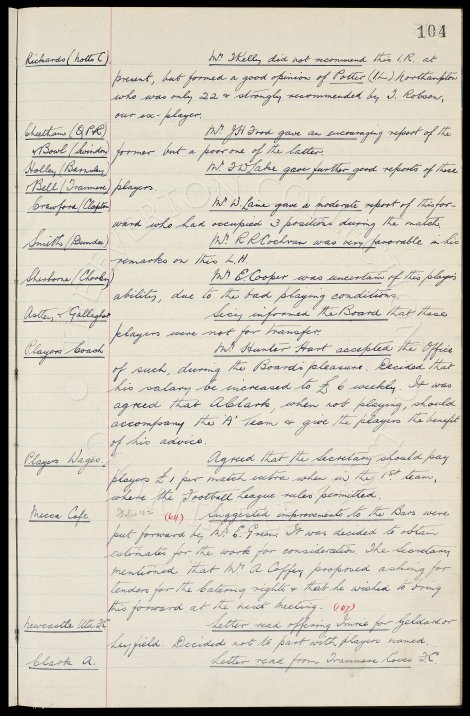 104
Richards (Notts C) Mr. T Kelly did not recommend this I.R. at
present, but formed a good opinion of Potter (I.L.) Northampton
who was only 22 & strongly recommended by J. Robson,
our ex-player.
Cheetham (Q.P.R.) Mr. J H Frood gave an encouraging report of the
& Bowl (Swindon) former but a poor one of the latter.
Holley (Barnsley) Mr. F D Lake gave further good reports of these
& Bell (Tranmere) players.
Crawford (Clapton) Mr. W. Lane gave a moderate report of this for-
ward who had occupied 3 positions during the match.
Smith (Dundee) Mr. R R Cochran was very favorable in his
remarks on this L.H.
Sherborne (Chorley) Mr. E Cooper was uncertain of this players
ability, due to the bad playing conditions.
Astley & Gallagher Secy informed the Board that these
players were not for transfer.
Players Coach Mr. Hunter Hart accepted the Office
of such, during the Board's pleasure. Decided that
his salary be increased to £6 weekly. It was
agreed that A Clark, when not playing, should
accompany the 'A' team & give the players the benefit
of his advice.
Players Wages. Agreed that the Secretary should pay
players £1 per match extra when in the 1st team,
where the Football League rules permitted.
Mecca Cafe. (611) Suggested improvements to the Bars were
put forward by Mr. E. Green. It was decided to obtain
estimates for the work for consideration. The Secretary
mentioned that Mr A Coffey proposed asking for
tenders for the Catering rights & that he wished to bring
this forward at the next meeting. (107)
Newcastle Utd F.C. Letter read offering Imrie for Geldard or
Leyfield. Decided not to part with players named.
Clark A. Letter read from Tranmere Rovers F.C.
EVERTON